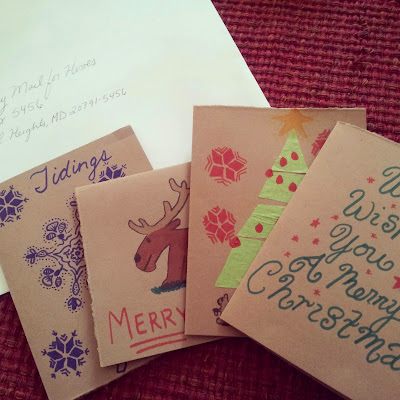 Mail for Heroes
5456
Heights, MD 20791-5456
Tidings
MERRY
Wish
You
A Merry
Christma